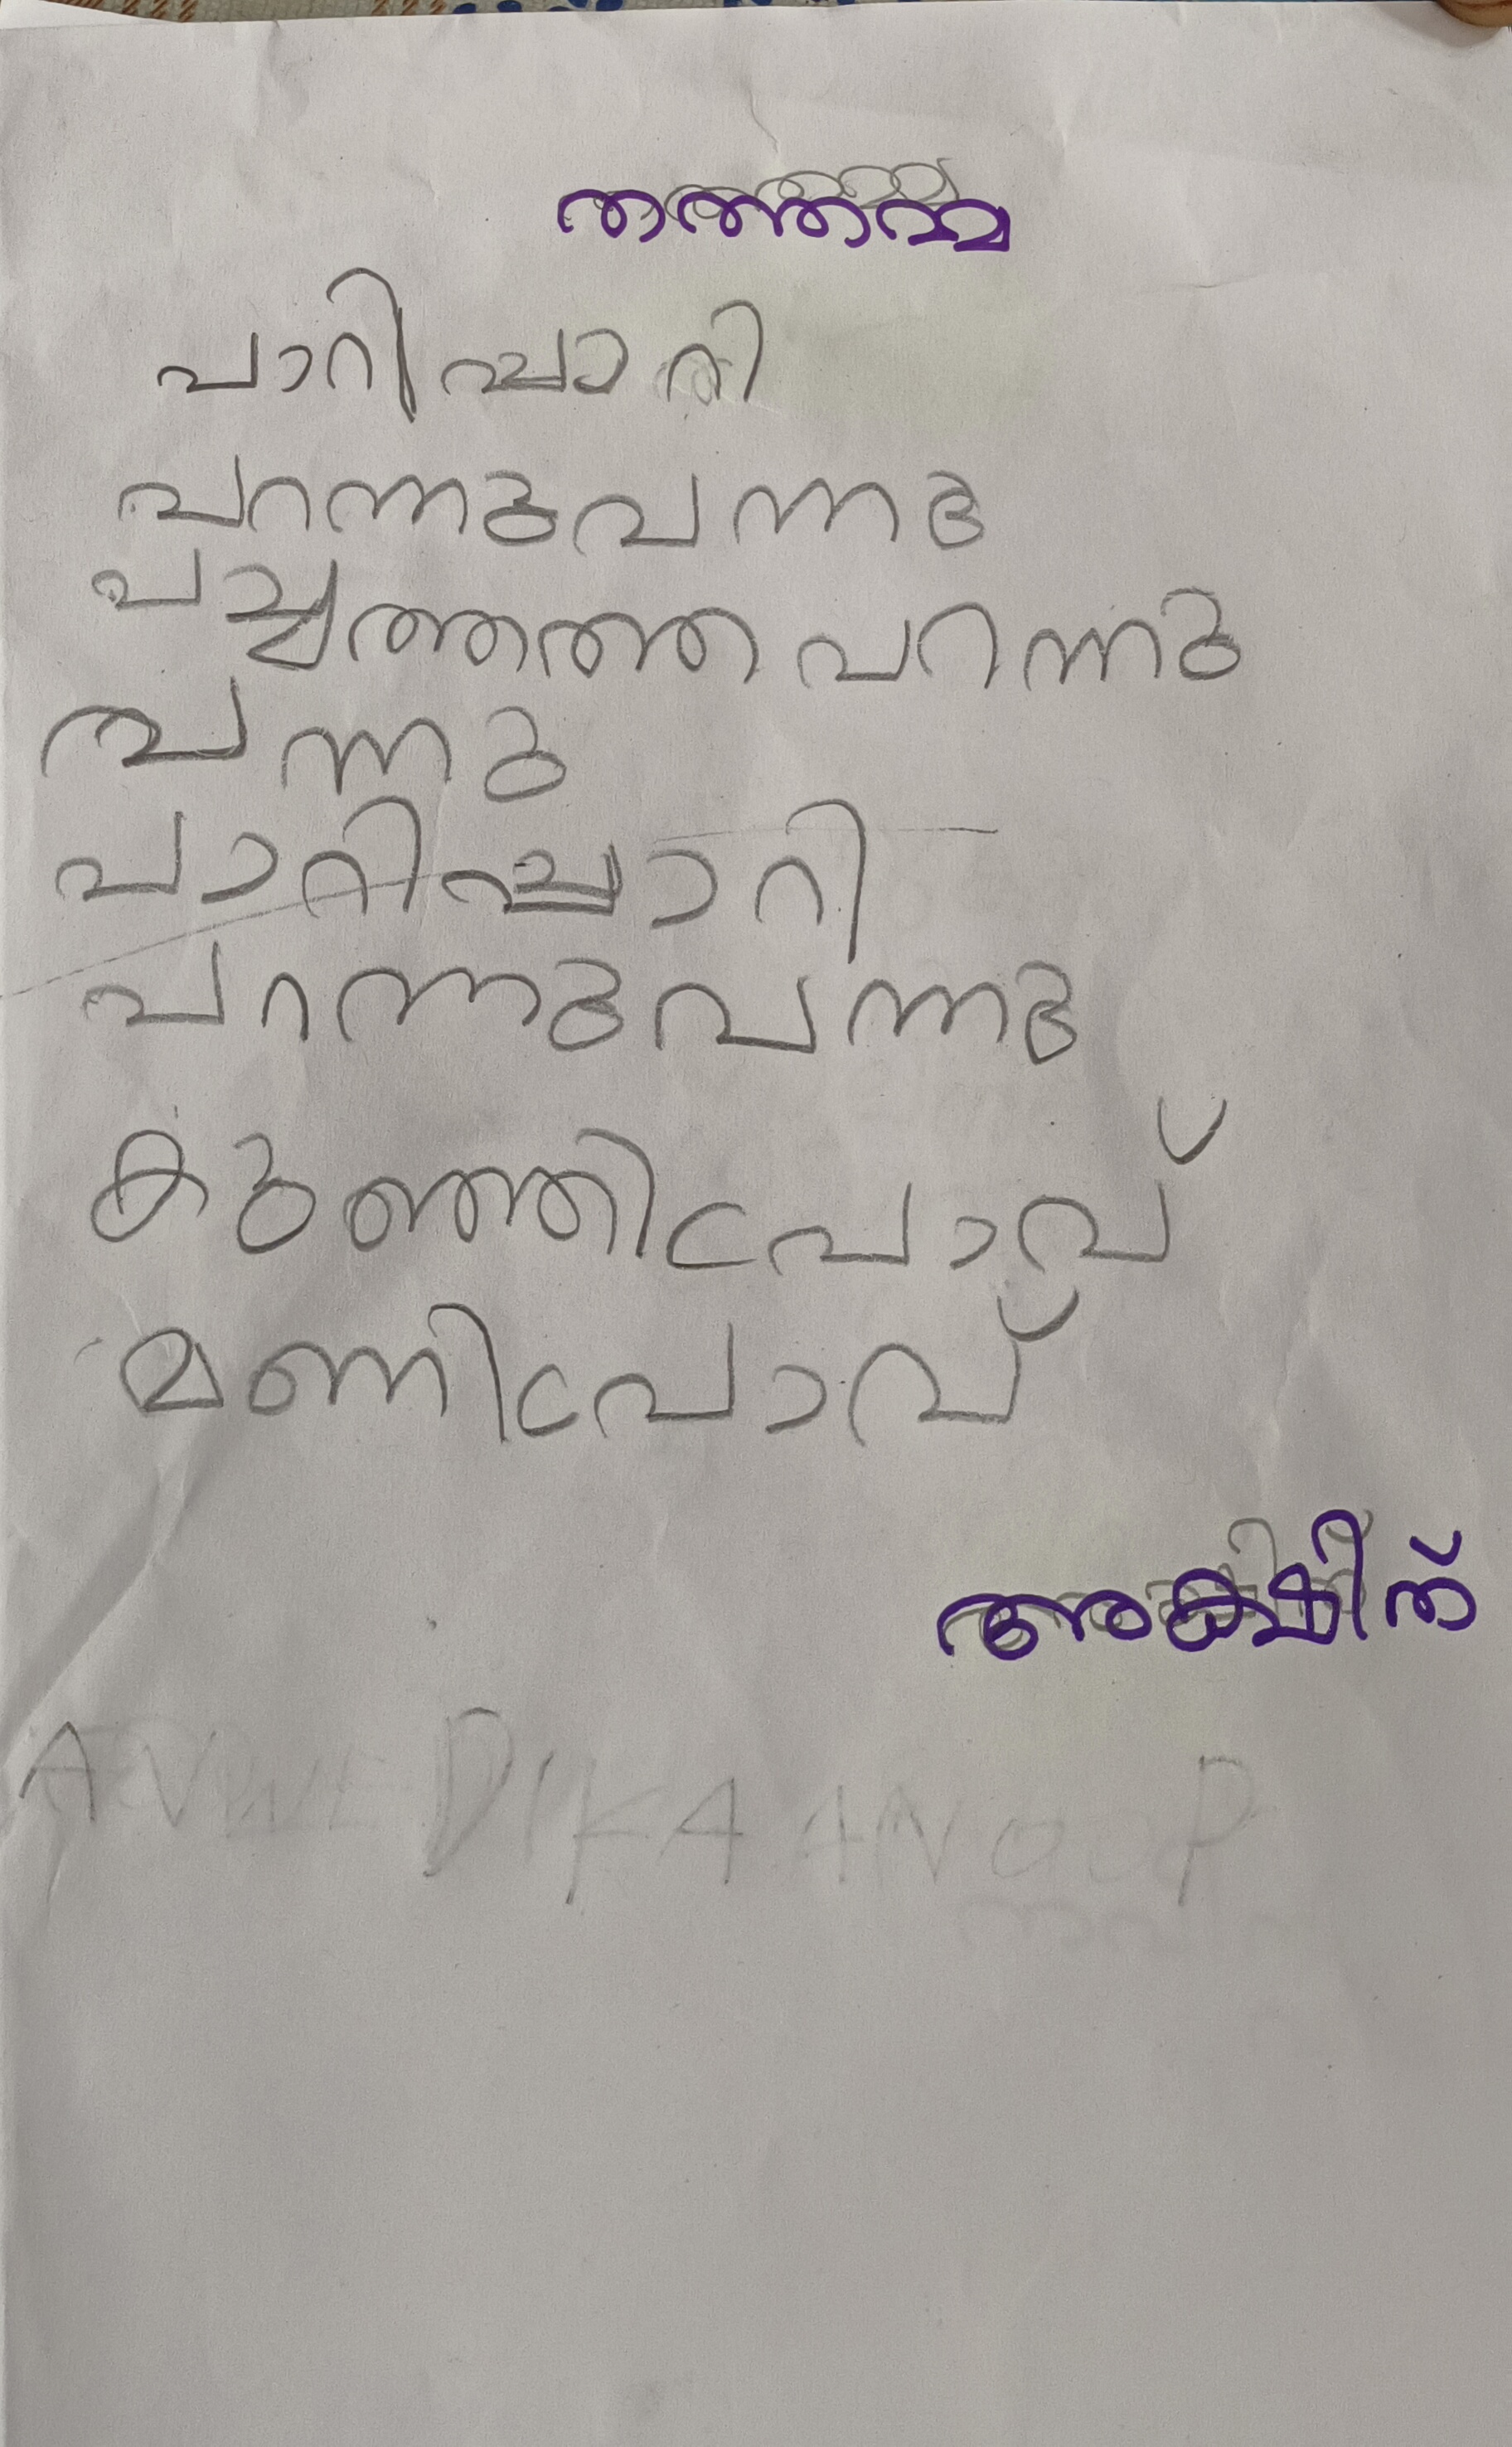 തത്തമ്മ
പാറിപ്പാറി
പറന്നുവന്നു
പച്ചത്തത്ത പറന്നു
വന്നു
പാറിപ്പാറി
പറന്നുവന്നു
കുഞ്ഞിപ്രാവ്
മണിപ്രാവ്
അക്ഷിത്
ANWEDIKA ANOOP